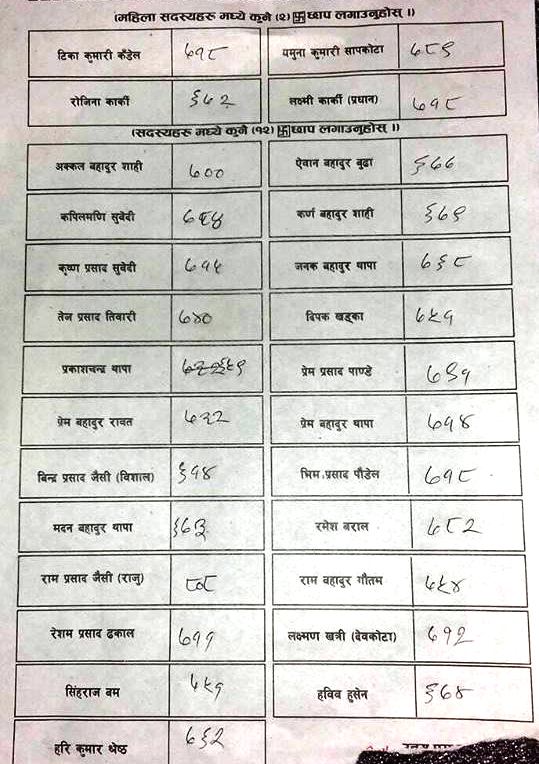 (महिला सदस्यहरु मध्ये कुनै (२) 卐 छाप लगाउनुहोस् ।)
टिका कुमारी कँडेल ७१८ यमुना कुमारी सापकोटा ७८९
रोजिना कार्की ६७२ लक्ष्मी कार्की (प्रधान) ७१८
(सदस्यहरु मध्ये कुनै (१२) 卐 छाप लगाउनुहोस् ।)
अक्कल बहादुर शाही ७०० ऐवान बहादुर बुढा ६७७
कपिलमणि सुवेदी कर्ण बहादुर शाही ६७९
कृष्ण प्रसाद सुवेदी ७१५ जनक बहादुर थापा ७६८
तेज प्रसाद तिवारी ७४० दिपक खड्का ७५१
प्रकाशचन्द्र थापा प्रेम प्रसाद पाण्डे
प्रेम बहादुर रावत ७३२ प्रेम बहादुर थापा ७१४
बिन्द्र प्रसाद जैसी (विशाल) ६१४ भिम प्रसाद पौडेल ७१८
मदन बहादुर थापा रमेश बराल ७८२
राम प्रसाद जैसी (राजु) राम बहादुर गौतम ७५४
रेशम प्रसाद ढकाल ७११ लक्ष्मण खत्री (देवकोटा) ७१२
सिंहराज बम ७५१ हविव हुसेन ६७४
हरि कुमार श्रेष्ठ ७६२